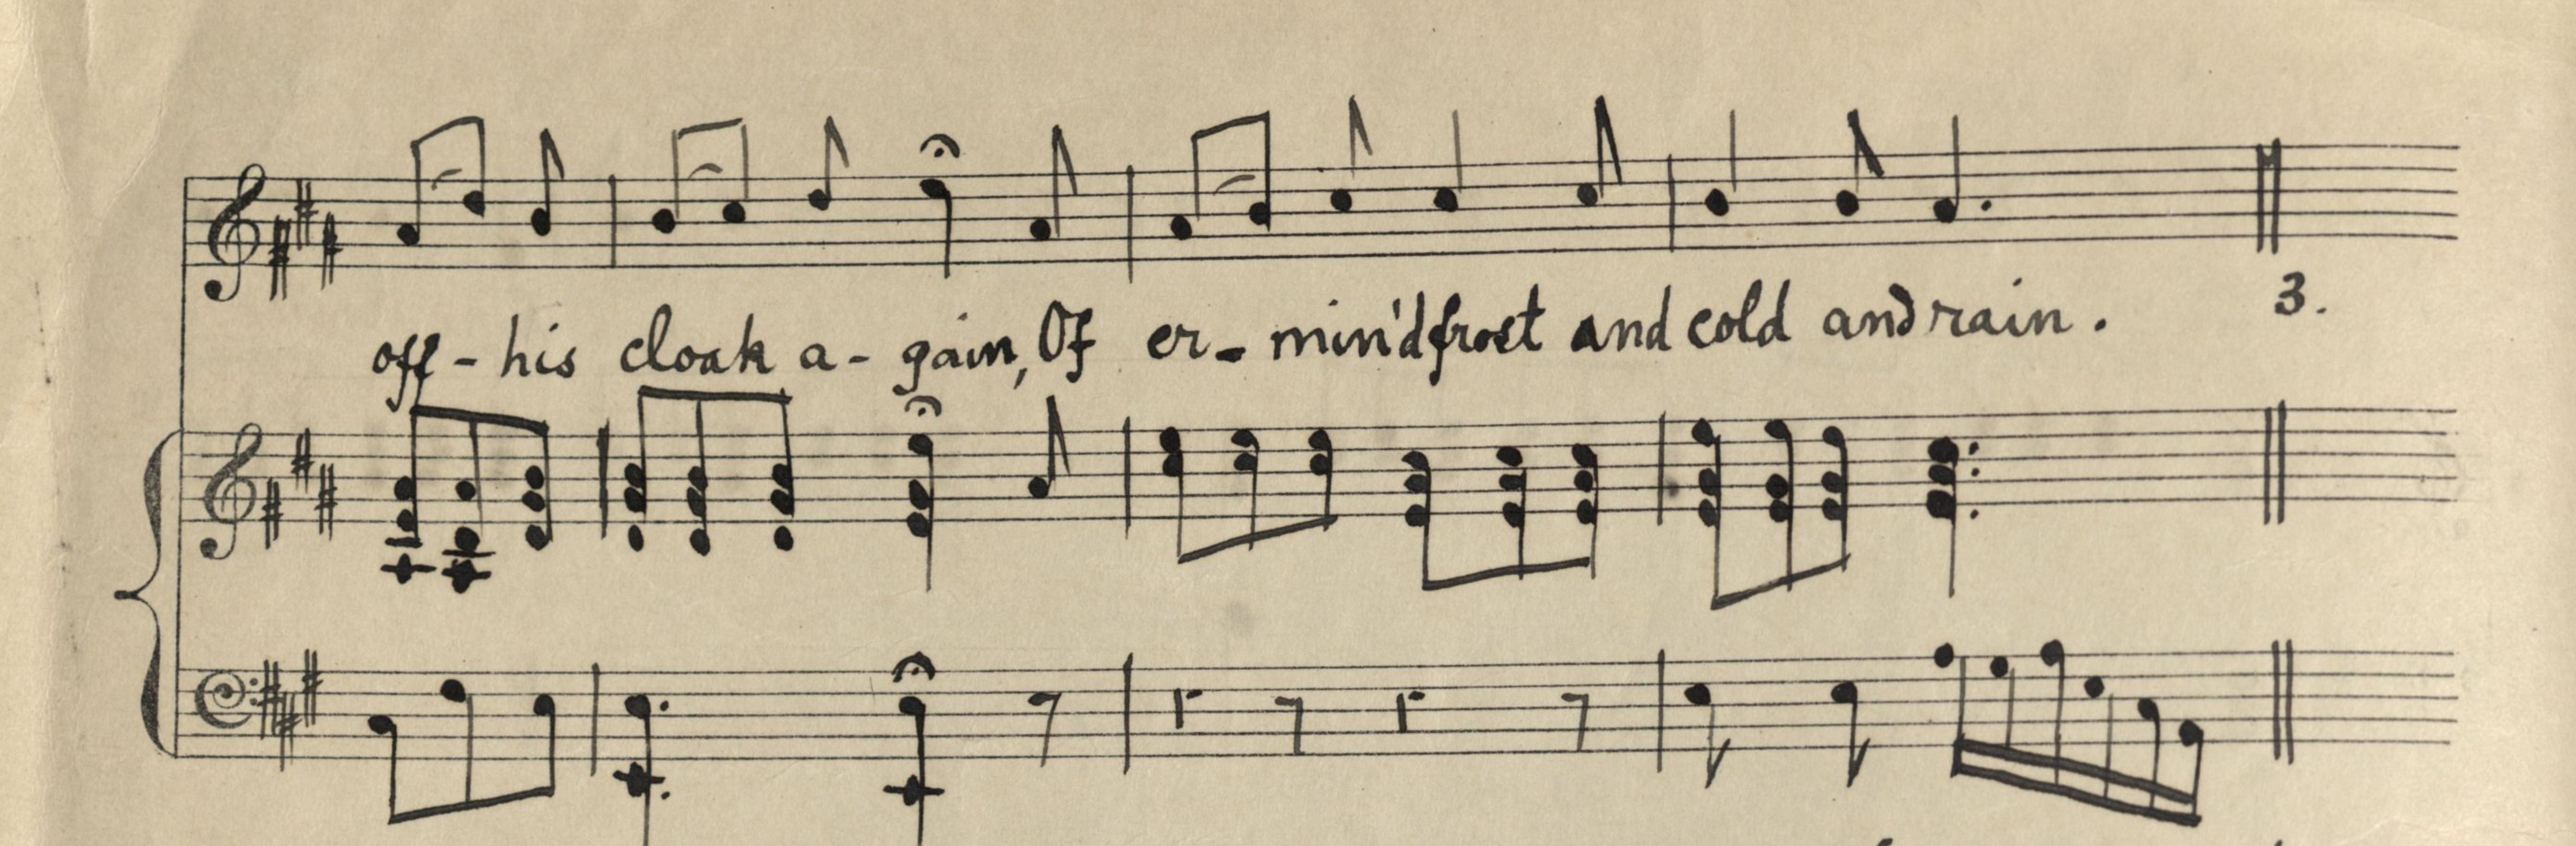 off - his cloak a - gain, Of er - min'd frost and cold and rain. 3.